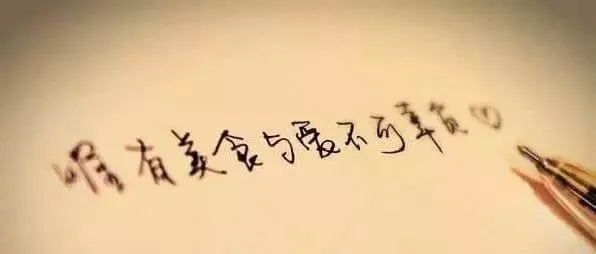 唯有美食与爱不可辜负♡